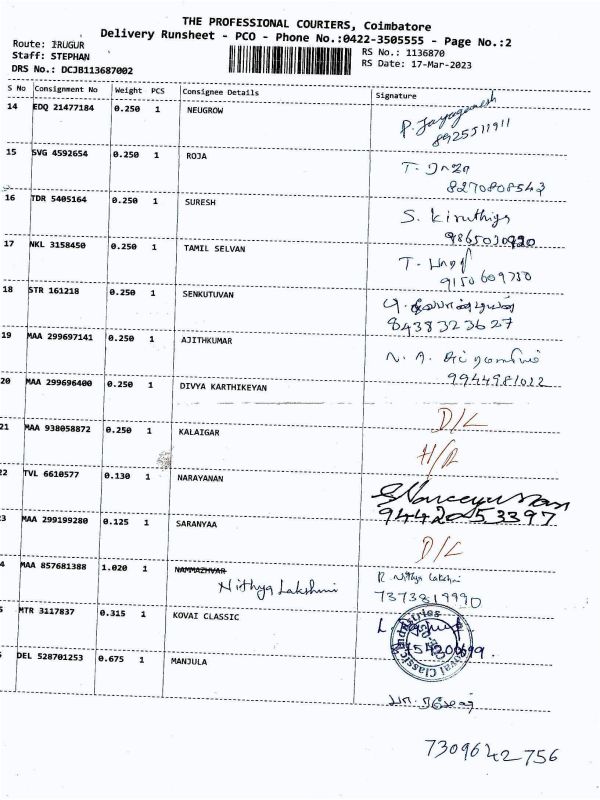 THE PROFESSIONAL COURIERS, Coimbatore
Delivery Runsheet - PCO - Phone No.:0422-3505555 - Page No.:2
Route: IRUGUR
Staff: STEPHAN
DRS No.: DCJB113687002
RS No.: 1136870
RS Date: 17-Mar-2023
S No Consignment No Weight PCS Consignee Details Signature
14 EDQ 21477184 0.250 1 NEUGROW P. Jayaganesh
8925511911
15 SVG 4592654 0.250 1 ROJA
8270808543
16 TDR 5405164 0.250 1 SURESH S. Kiruthiga
9865020920
17 NKL 3158450 0.250 1 TAMIL SELVAN
9150609750
18 STR 161218 0.250 1 SENKUTUVAN
8438323627
19 MAA 299697141 0.250 1 AJITHKUMAR
9944981022
20 MAA 299696400 0.250 1 DIVYA KARTHIKEYAN D/L
21 MAA 938058872 0.250 1 KALAIGAR
22 TVL 6610577 0.130 1 NARAYANAN
9442053397
3 MAA 299199280 0.125 1 SARANYAA D/L
4 MAA 857681388 1.020 1 NAMMAZHVAR Nithya Lakshmi R. Nithya Lakshmi
7373819990
MTR 3117837 0.315 1 KOVAI CLASSIC
DEL 528701253 0.675 1 MANJULA
7309642756